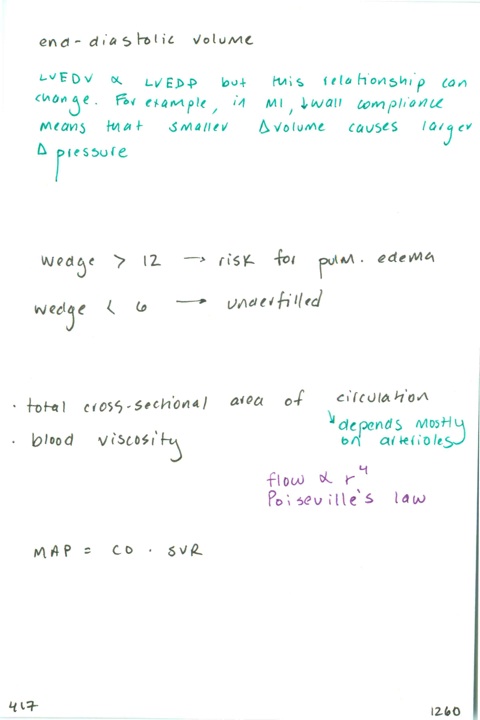 end-diastolic volume
LVEDV ∝ LVEDP but this relationship can
change. For example, in MI, ↓wall compliance
means that smaller Δvolume causes larger
Δ pressure
wedge > 12 → risk for pulm. edema
wedge < 6 → underfilled
· total cross-sectional area of circulation
↳depends mostly
on arterioles
· blood viscosity
flow ∝ r⁴
Poiseville's law
MAP = CO · SVR
417
1260